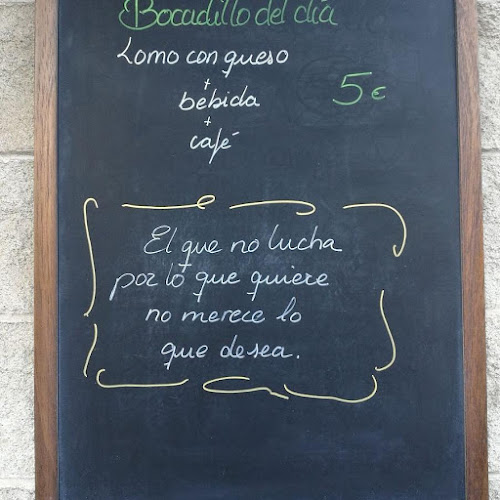 Bocadillo del día
Lomo con queso
+
bebida
5 €
+
café
El que no lucha
por lo que quiere
no merece lo
que desea.